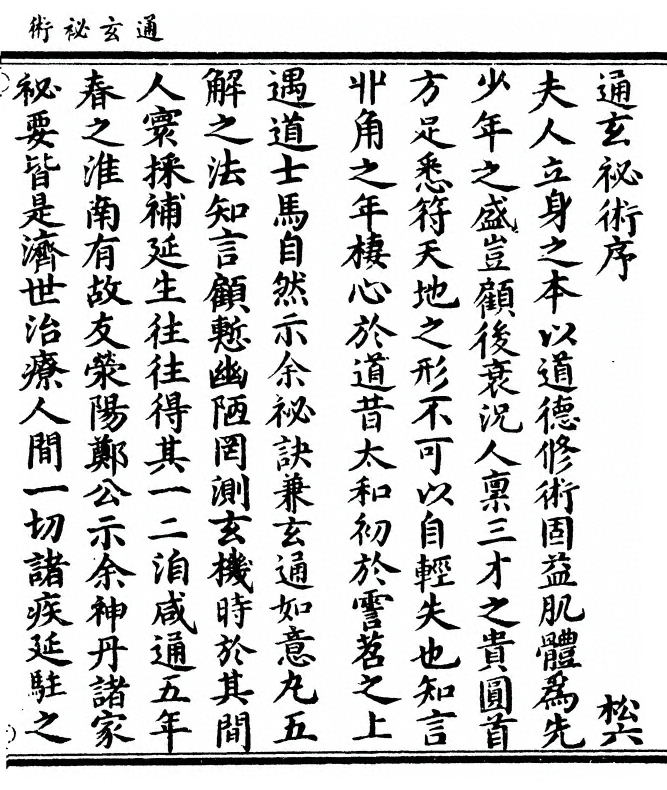 通玄祕術
通玄祕術序
松六
夫人立身之本以道德修術固益肌體爲先
少年之盛豈顧後衰況人禀三才之貴圓首
方足悉符天地之形不可以自輕失也知言
丱角之年棲心於道昔太和初於霅苕之上
遇道士馬自然示余祕訣兼玄通如意丸五
解之法知言顧慙幽陋罔測玄機時於其間
人寰採補延生往往得其一二洎咸通五年
春之淮南有故友滎陽鄭公示余神丹諸家
祕要皆是濟世治療人間一切諸疾延駐之